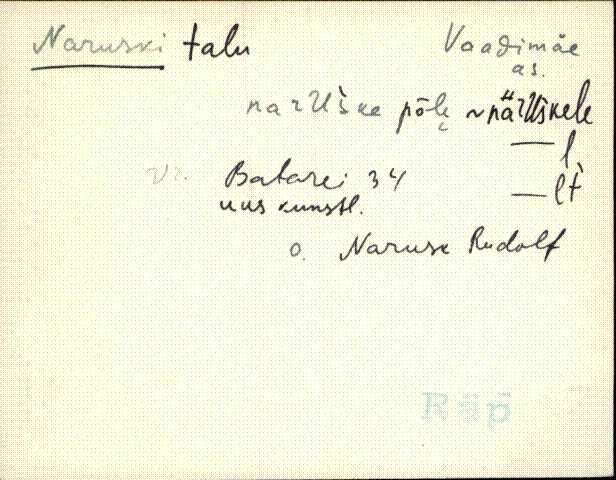 Naruski talu
Vaadimäe
as.
naruške põle ~ näruškele
— l
— lt
Vr. Batarei 34
uus kunstl.
o. Naruse Rudolf
Räp